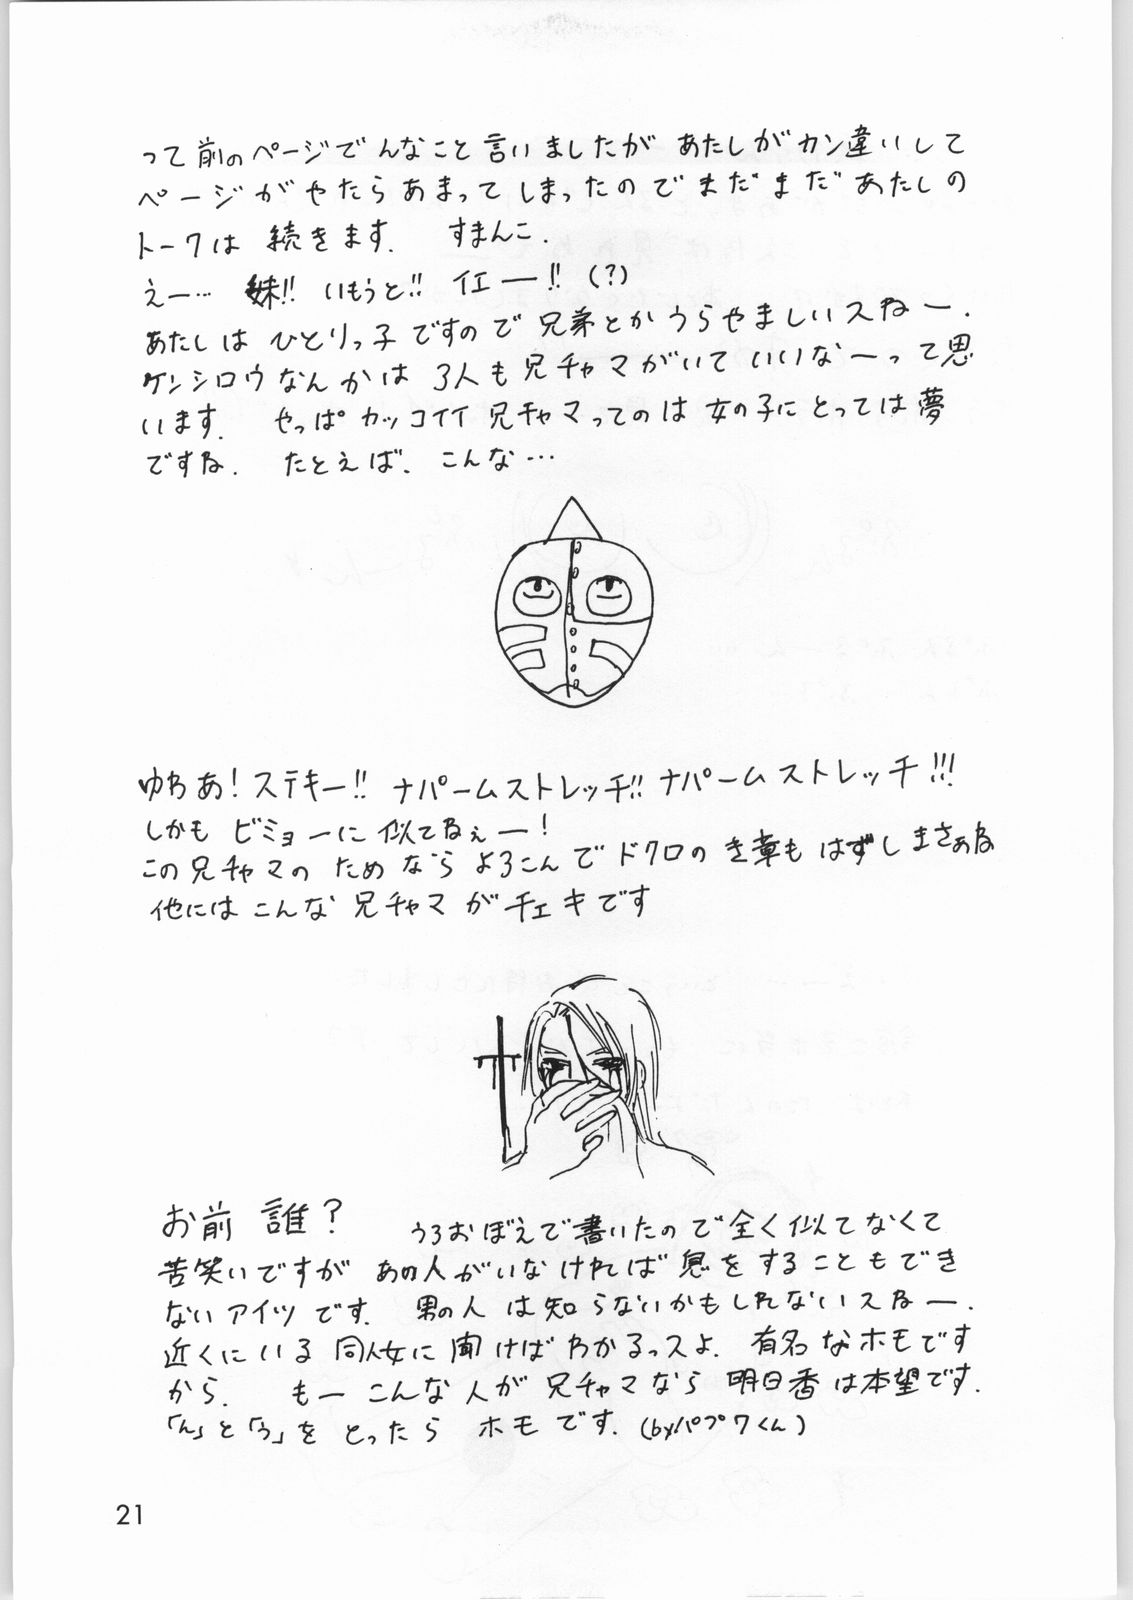 って前のページでんなこと言いましたが あたしがカン違いして
ページがやたらあまってしまったのでまだまだあたしの
トークは 続きます. すまんこ.
えー… 妹!! いもうと!! イエー!! (?)
あたしは ひとりっ子ですので兄弟とかうらやましいスねー.
ケンシロウなんかは 3人も兄チャマがいていいなーって思
います. やっぱカッコイイ兄チャマってのは女の子にとっては夢
ですね. たとえば、こんな…
ゆわあ! ステキー!! ナパームストレッチ!! ナパームストレッチ!!!
しかも ビミョーに 似てねぇー!
この兄チャマの ため なら よろこんで ドクロのき章も はずしまさぁね
他には こんな 兄チャマ が チェキです
お前 誰? うろおぼえで書いたので全く似てなくて
苦笑いですが あの人がいなければ息をすることもでき
ないアイツです. 男の人は知らないかもしれないスねー.
近くにいる 同人女に聞けばわかるっスよ. 有名なホモです
から. もー こんな人が 兄チャマなら 明日香は本望です.
「ん」と「う」を とったら ホモです. (byパプワくん)
21